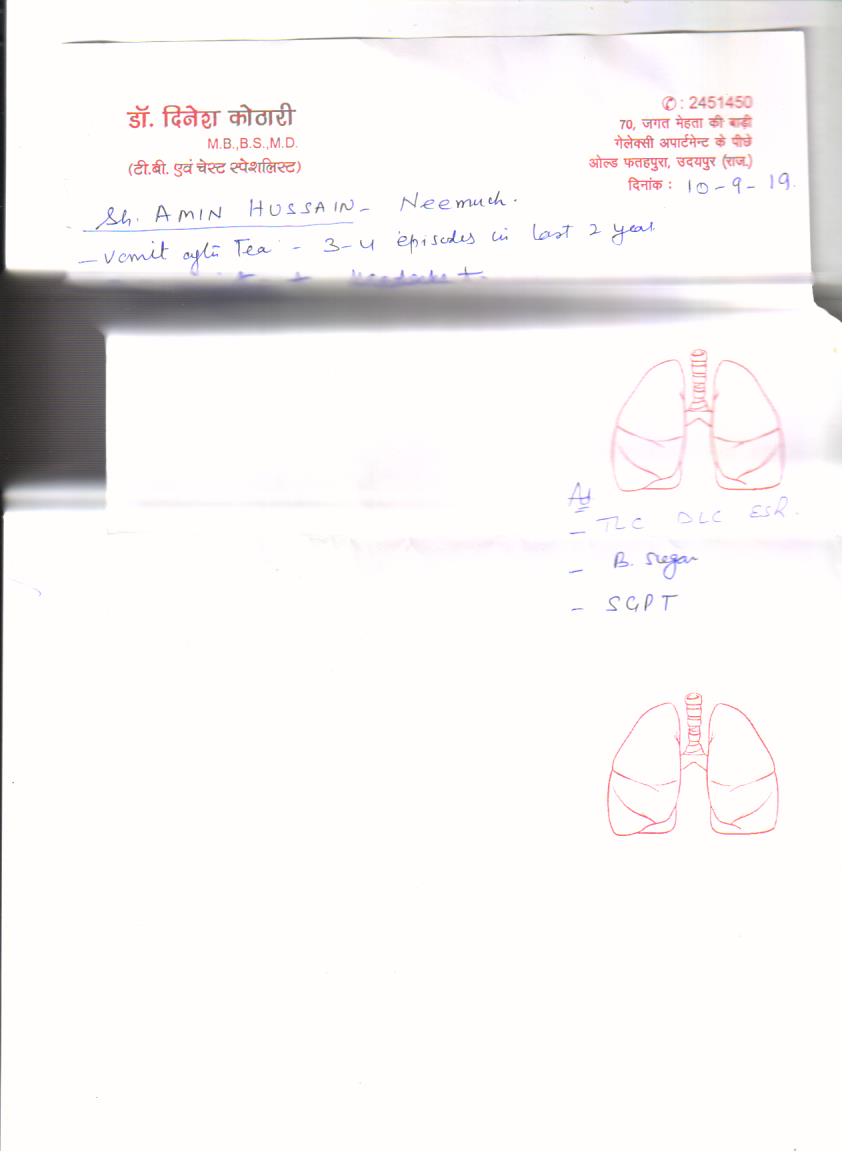 डॉ. दिनेश कोठारी
M.B.,B.S.,M.D.
(टी.बी. एवं चेस्ट स्पेशलिस्ट)
✆ : 2451450
70, जगत मेहता की बाड़ी
गेलेक्सी अपार्टमेन्ट के पीछे
ओल्ड फतहपुरा, उदयपुर (राज.)
दिनांक : 10-9-19.
Sh. AMIN HUSSAIN - Neemuch.
- Vomit Tea - 3-4 episodes in last 2 year
Headache +
Ad
- TLC DLC ESR.
- B. Sugar
- SGPT